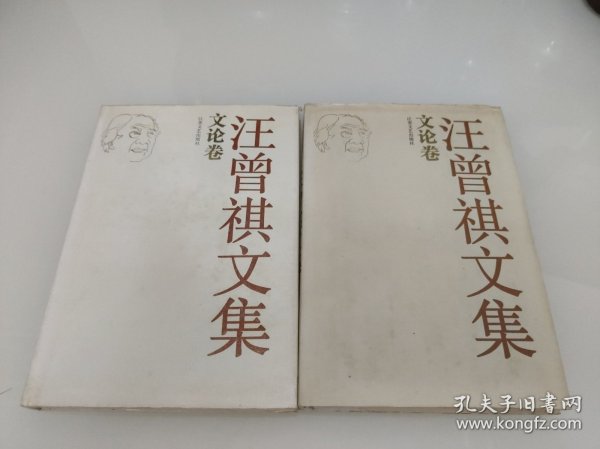 汪曾祺文集
文论卷
江苏文艺出版社
汪曾祺文集
文论卷
江苏文艺出版社
孔夫子旧书网
www.kongfz.com